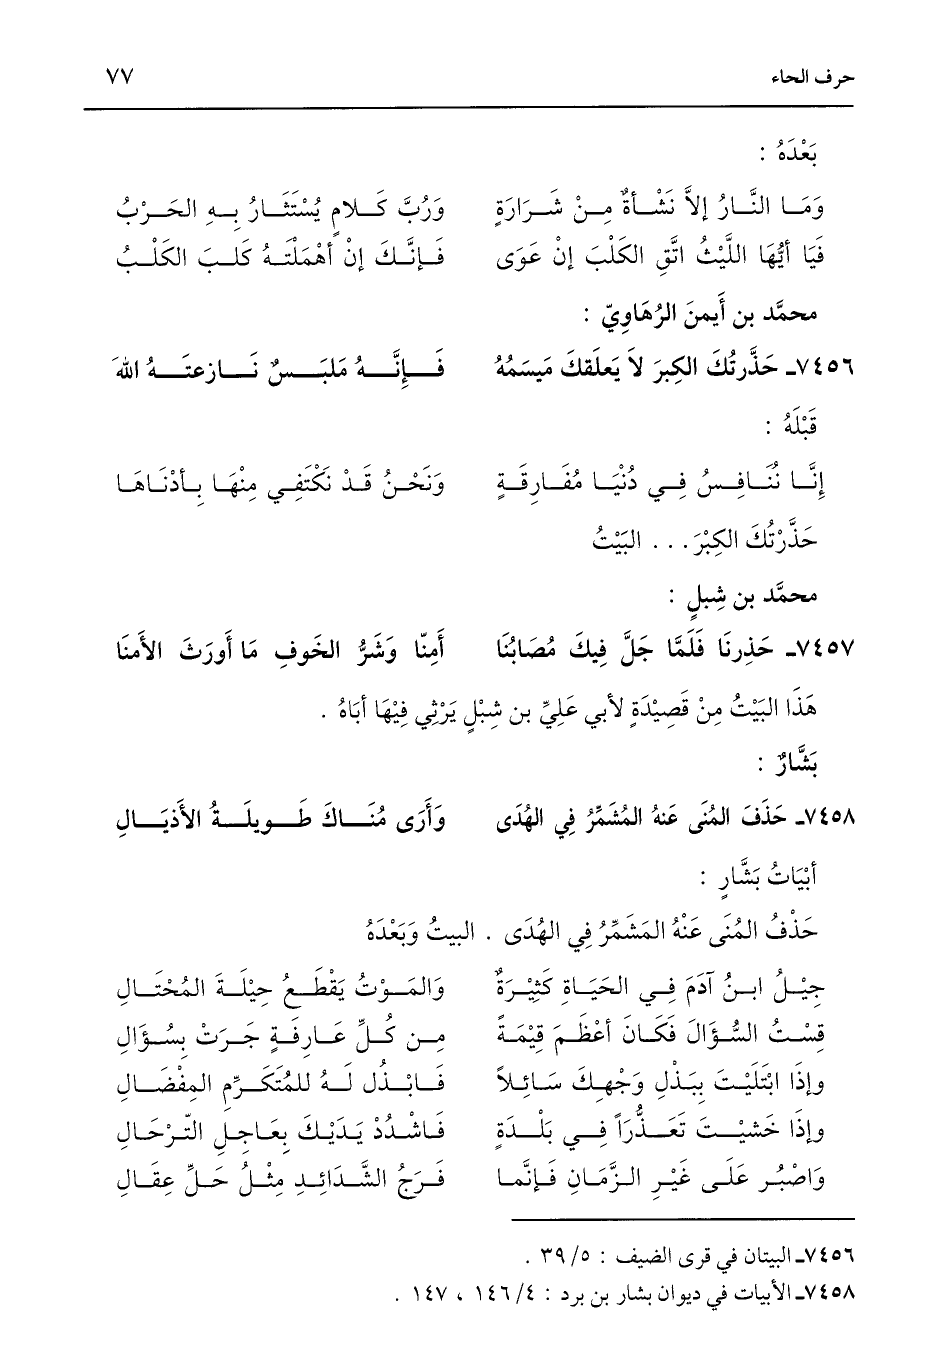 حرف الحاء ٧٧
بَعْدَهُ :
وَمَا النَّارُ إلاَّ نَشْأةٌ مِنْ شَرَارَةٍ وَرُبَّ كَلامٍ يُسْتَثَارُ بِهِ الحَرْبُ
فَيَا أيُّهَا اللَّيْثُ اتَّقِ الكَلْبَ إنْ عَوَى فَإنَّكَ إنْ أهْمَلْتَهُ كَلبَ الكَلْبُ
محمَّد بن أَيمنَ الرُهَاوِيّ :
٧٤٥٦ـ حَذَّرتُكَ الكِبرَ لاَ يَعلَقكَ مَيسَمُهُ فَإنَّهُ مَلبَسٌ نَازعتَهُ اللهَ
قَبْلَهُ :
إنَّا نُنَافِسُ فِي دُنْيَا مُفَارِقَةٍ وَنَحْنُ قَدْ نَكْتَفِي مِنْهَا بِأدْنَاهَا
حَذَّرْتُكَ الكِبْرَ. . . البَيْتُ
محمَّد بن شِبلٍ :
٧٤٥٧ـ حَذِرنَا فَلَمَّا جَلَّ فِيكَ مُصَابُنَا أَمِنّا وَشَرُّ الخَوفِ مَا أَورَثَ الأمنَا
هَذَا البَيْتُ مِنْ قَصِيْدَةٍ لأبي عَلِيِّ بن شِبْلٍ يَرْثِي فِيْهَا أبَاهُ .
بَشَّارٌ :
٧٤٥٨ـ حَذَفَ المُنَى عَنهُ المُشَمِّرُ فِي الهُدَى وَأَرَى مُنَاكَ طَويلَةُ الأَذيَالِ
أبْيَاتُ بَشَّارٍ :
حَذْفُ المُنَى عَنْهُ المَشَمِّرُ فِي الهُدَى . البيتُ وَبَعْدَهُ
جِيْلُ ابنُ آدَمَ فِي الحَيَاةِ كَثِيْرَةٌ وَالمَوْتُ يَقْطَعُ حِيْلَةَ المُحْتَالِ
قِسْتُ السُّؤَالَ فَكَانَ أعْظَمَ قِيْمَةً مِن كُلِّ عَارِفَةٍ جَرَتْ بِسُؤَالِ
وإذَا ابْتَلَيْتَ بِبَذْلِ وَجْهِكَ سَائِلاً فَابْذُل لَهُ لِلمُتَكَرِّمِ المِفْضَالِ
وإذَا خَشيْتَ تَعَذُّرَاً فِي بَلْدَةٍ فَاشْدُدْ يَدَيْكَ بِعَاجِلِ التّرحَالِ
وَاصْبُر عَلَى غَيْرِ الزَّمَانِ فَإنَّمَا فَرَجُ الشَّدَائِدِ مِثْلُ حَلِّ عِقَالِ
٧٤٥٦ـ البيتان في قرى الضيف : ٥/ ٣٩ .
٧٤٥٨ـ الأبيات في ديوان بشار بن برد : ٤/ ١٤٦ ، ١٤٧ .